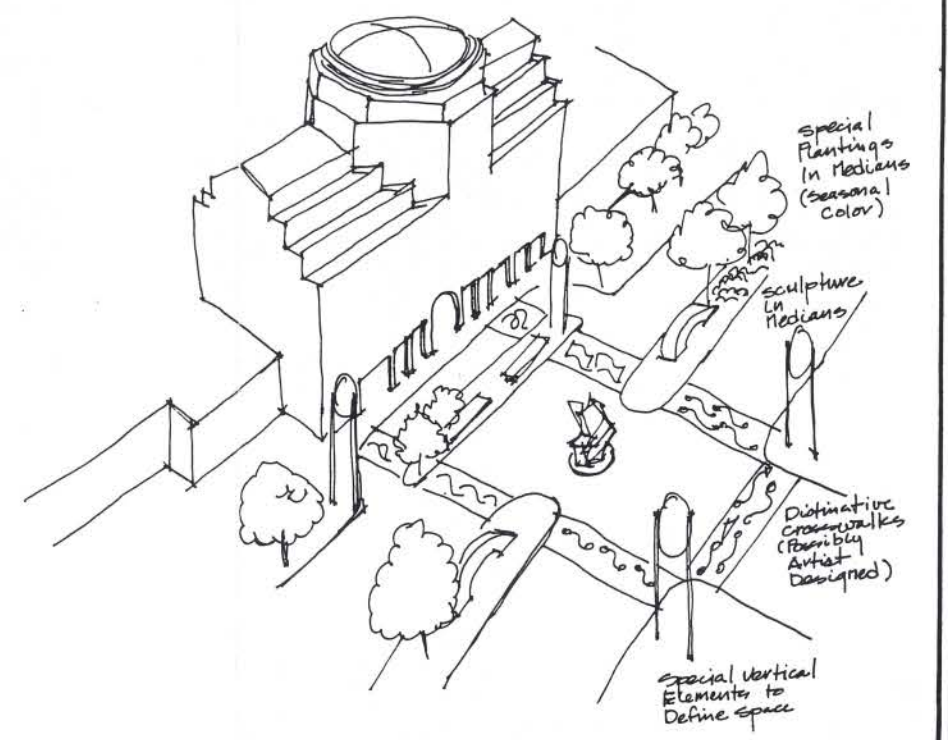 Special
Plantings
In Medians
(Seasonal
Color)
Sculpture
in
Medians
Distinative
crosswalks
(Possibly
Artist
Designed)
Special vertical
Elements to
Define space